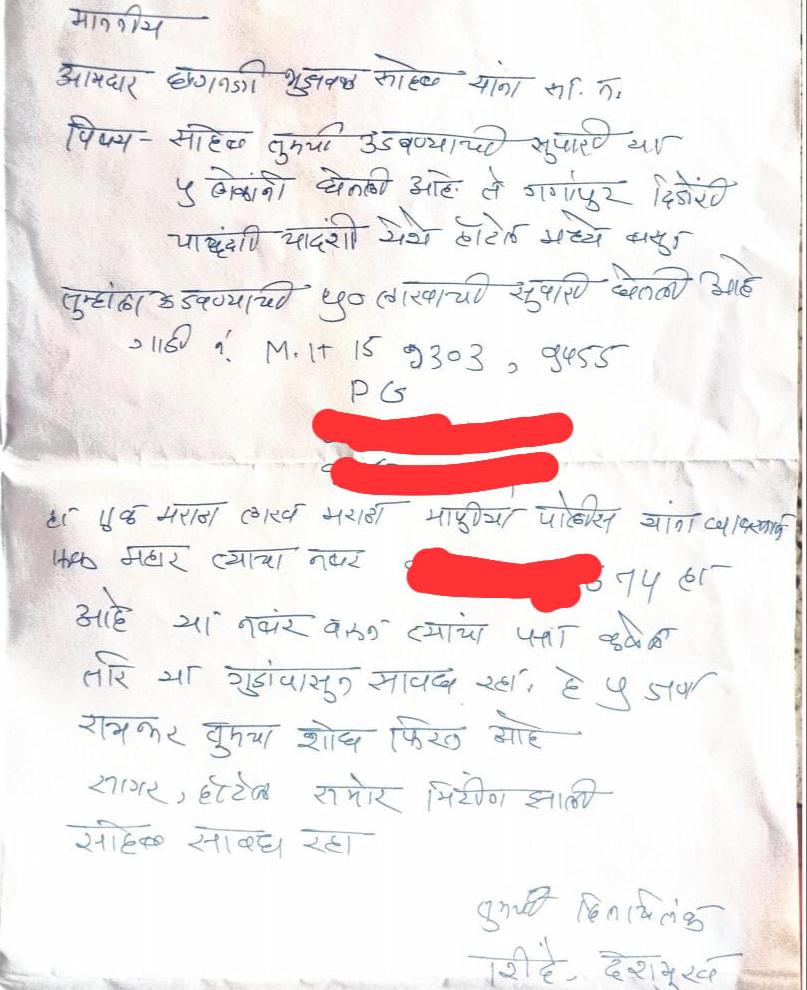 माननीय
आमदार छगनजी भुजबळ साहेब यांना स. न.
विषय - साहेब तुमची उडवण्याची सुपारी या
५ लोकांनी घेतली आहे ते गंगापुर दिंडोरी
येथे हॉटेल मध्ये बसुन
तुम्हांला उडवण्याची ५० लाखाची सुपारी घेतली आहे
गाडी नं. M.H 15 9303, 9455
PG
हा एक मराठा लाख मराठा पोलीस यांना
एक महार त्याचा नंबर 75 हा
आहे या नंबर वरुन त्यांचा पत्ता कळेल
तरि या गुडांपासुन सावध रहा. हे ५ जण
रात्रभर तुमचा शोध फिरत आहे
सागर, हॉटेल समोर मिटींग झाली
साहेब सावध रहा
तुमची हितचिंतक
शिंदे, देशमुख